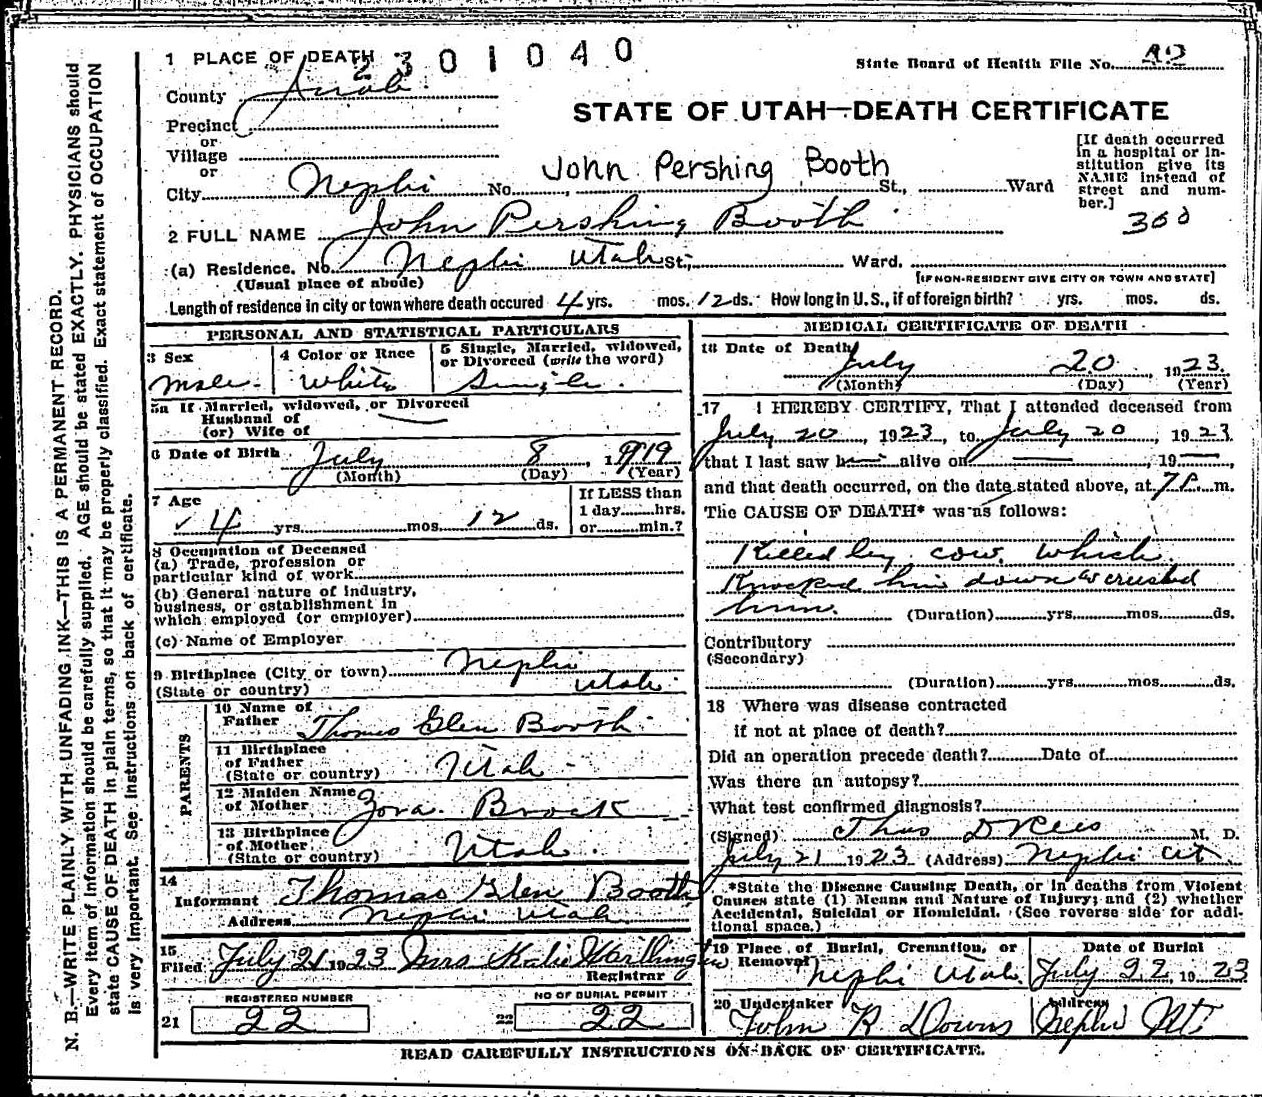 1 PLACE OF DEATH
2301040
State Board of Health File No. 42
County Juab.
STATE OF UTAH—DEATH CERTIFICATE
Precinct
or
Village
or
City Nephi No. , St., Ward
John Pershing Booth
[If death occurred in a hospital or in-
stitution give its
NAME instead of
street and num-
ber.]
300
2 FULL NAME John Pershing Booth
(a) Residence. No. Nephi Utah St., Ward.
(Usual place of abode)
[IF NON-RESIDENT GIVE CITY OR TOWN AND STATE]
Length of residence in city or town where death occured 4 yrs. mos. 12 ds. How long in U.S., if of foreign birth? yrs. mos. ds.
PERSONAL AND STATISTICAL PARTICULARS
3 Sex
Male
4 Color or Race
White
5 Single, Married, widowed,
or Divorced (write the word)
Single.
5a If Married, widowed, or Divorced
Husband of
(or) Wife of
6 Date of Birth July 8, 1919
(Month) (Day) (Year)
7 Age
4 yrs. mos. 12 ds.
If LESS than
1 day hrs.
or min.?
8 Occupation of Deceased
(a) Trade, profession or
particular kind of work
(b) General nature of industry,
business, or establishment in
which employed (or employer)
(c) Name of Employer
9 Birthplace (City or town) Nephi
(State or country) Utah
PARENTS
10 Name of
Father Thomas Glen Booth
11 Birthplace
of Father
(State or country) Utah
12 Maiden Name
of Mother Zora Brock
13 Birthplace
of Mother
(State or country) Utah.
14
Informant Thomas Glen Booth
Address Nephi Utah
15
Filed July 21 1923 Mrs Katie Worthington
Registrar
REGISTERED NUMBER
21 22
NO OF BURIAL PERMIT
22 22
MEDICAL CERTIFICATE OF DEATH
16 Date of Death
July 20, 1923.
(Month) (Day) (Year)
17 I HEREBY CERTIFY, That I attended deceased from
July 20, 1923, to July 20, 1923
that I last saw h— alive on —, 19—,
and that death occurred, on the date stated above, at 7 P. m.
The CAUSE OF DEATH* was as follows:
Killed by cow. which
Knocked him down & crushed
him. (Duration) yrs. mos. ds.
Contributory
(Secondary)
(Duration) yrs. mos. ds.
18 Where was disease contracted
if not at place of death?
Did an operation precede death? Date of
Was there an autopsy?
What test confirmed diagnosis?
(Signed) Thos D Rees M. D.
July 21 1923 (Address) Nephi Ut
*State the Disease Causing Death, or in deaths from Violent
Causes state (1) Means and Nature of Injury; and (2) whether
Accidental, Suicidal or Homicidal. (See reverse side for addi-
tional space.)
19 Place of Burial, Cremation, or
Removal
Nephi Utah.
Date of Burial
July 22, 1923
20 Undertaker
John K Downs
Address
Nephi Ut.
READ CAREFULLY INSTRUCTIONS ON BACK OF CERTIFICATE.
N. B.—WRITE PLAINLY WITH UNFADING INK—THIS IS A PERMANENT RECORD.
Every item of information should be carefully supplied. AGE should be stated EXACTLY. PHYSICIANS should
state CAUSE OF DEATH in plain terms, so that it may be properly classified. Exact statement of OCCUPATION
is very important. See instructions on back of certificate.